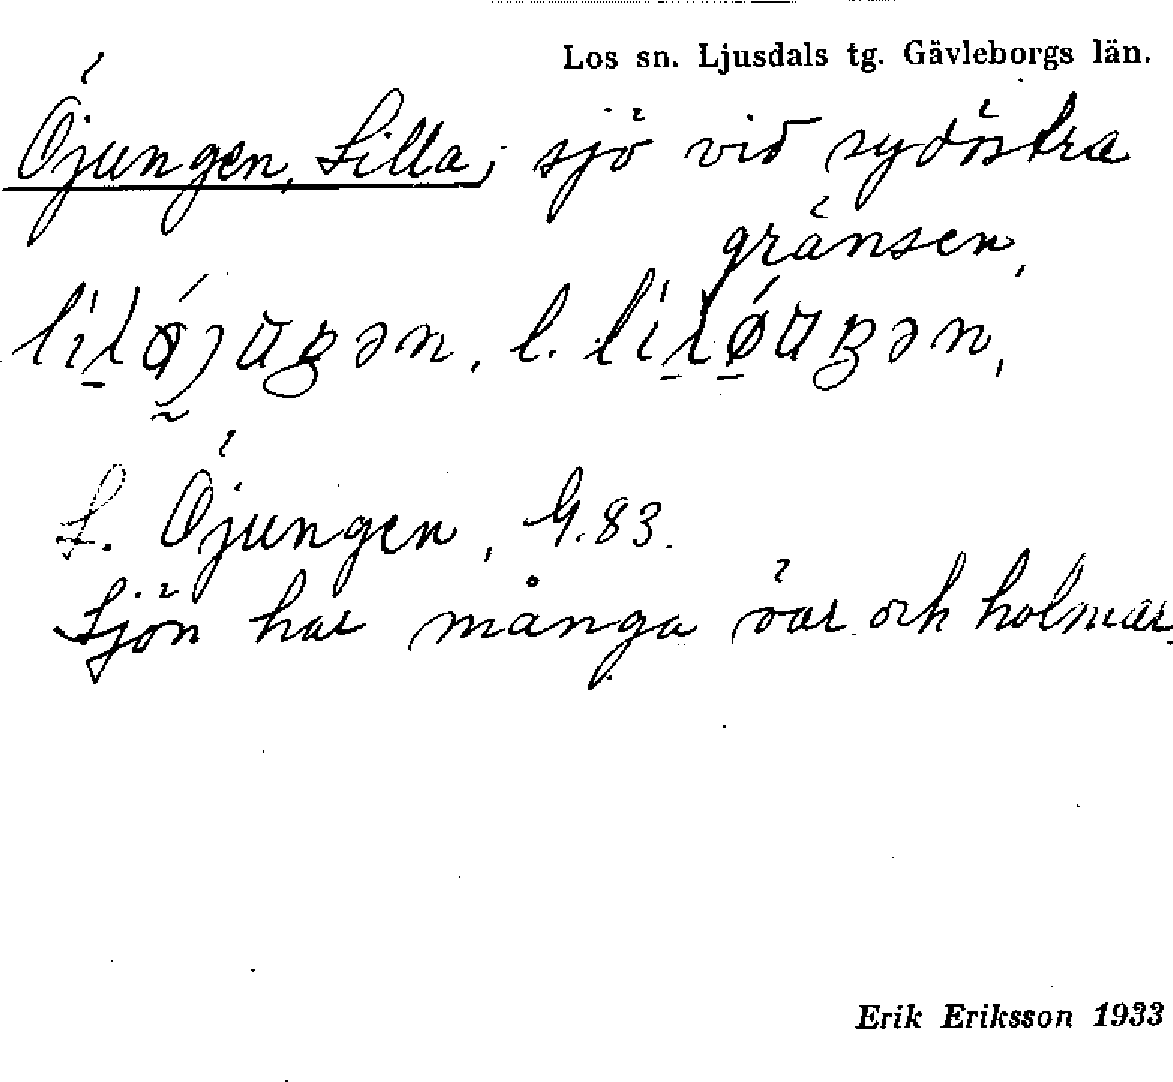 Los sn. Ljusdals tg. Gävleborgs län.
Öjungen, Lilla, sjö vid sydöstra
gränsen,
l.
L. Öjungen, G. 83.
Sjön har många öar och holmar
Erik Eriksson 1933